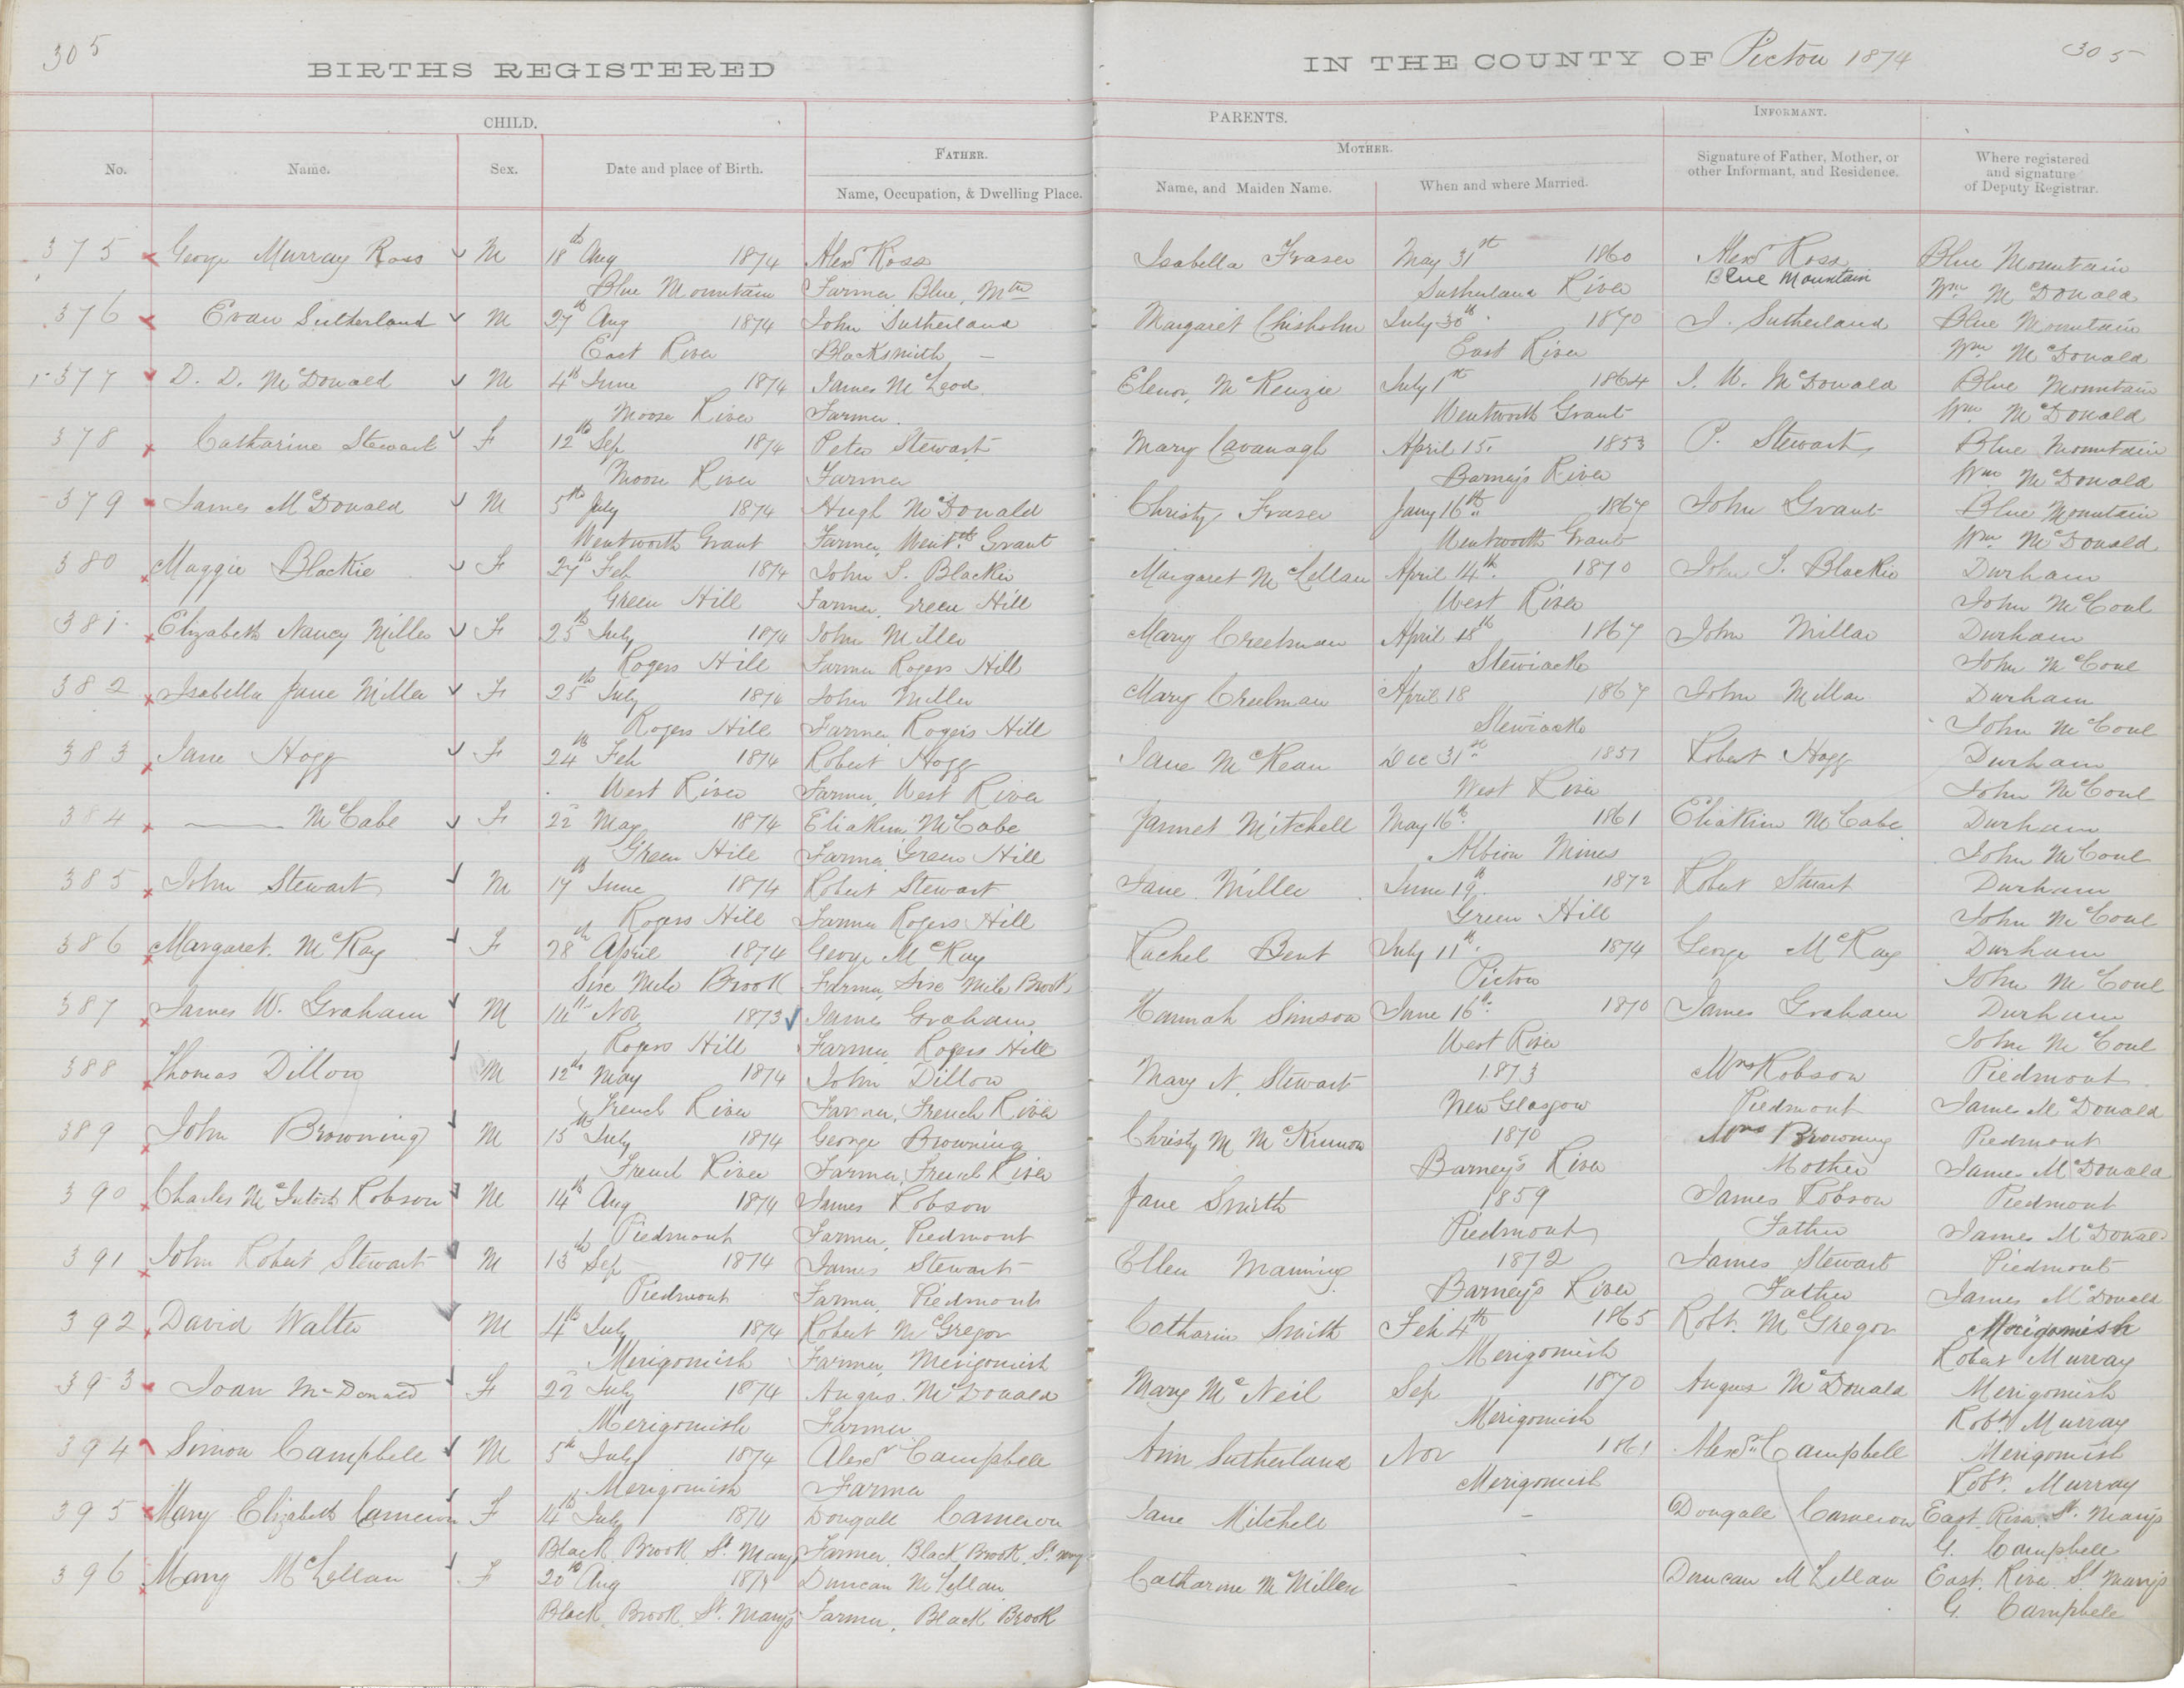 305
BIRTHS REGISTERED IN THE COUNTY OF Pictou 1874
305
CHILD. PARENTS. INFORMANT.
No. Name. Sex. Date and place of Birth. FATHER. Name, Occupation, & Dwelling Place. MOTHER. Name, and Maiden Name. When and where Married. Signature of Father, Mother, or other Informant, and Residence. Where registered and signature of Deputy Registrar.
375 George Murray Ross M 18th Aug 1874 Alexr Ross Isabella Fraser May 31st 1860 Alexr Ross Blue Mountain
Blue Mountain Farmer Blue Mtn Sutherland River Blue Mountain Wm McDonald
376 Evan Sutherland M 27th Aug 1874 John Sutherland Margaret Chisholm July 30th 1870 J. Sutherland Blue Mountain
East River Blacksmith East River Wm McDonald
377 D. D. McDonald M 4th June 1874 James McLeod Elenor McKenzie July 1st 1864 J. W. McDonald Blue Mountain
Moose River Farmer Wentworth Grant Wm McDonald
378 Catharine Stewart F 12th Sep 1874 Peter Stewart Mary Cavanagh April 15. 1853 P. Stewart Blue Mountain
Moose River Farmer Barney's River Wm McDonald
379 James McDonald M 5th July 1874 Hugh McDonald Christy Fraser Jany 16th 1867 John Grant Blue Mountain
Wentworth Grant Farmer Went.th Grant Wentworth Grant Wm McDonald
380 Maggie Blackie F 27th Feb 1874 John S. Blackie Margaret McLellan April 14th 1870 John S. Blackie Durham
Green Hill Farmer Green Hill West River John McCoul
381 Elizabeth Nancy Miller F 25th July 1874 John Miller Mary Creelman April 18th 1867 John Millar Durham
Rogers Hill Farmer Rogers Hill Stewiacke John McCoul
382 Isabella Jane Miller F 25th July 1874 John Miller Mary Creelman April 18 1867 John Millar Durham
Rogers Hill Farmer Rogers Hill Stewiacke John McCoul
383 Jane Hogg F 24th Feb 1874 Robert Hogg Jane McKean Dec 31st 1851 Robert Hogg Durham
West River Farmer, West River West River John McCoul
384 —— McCabe F 22 May 1874 Eliakim McCabe Jannet Mitchell May 16th 1861 Eliakim McCabe Durham
Green Hill Farmer Green Hill Albion Mines John McCoul
385 John Stewart M 17th June 1874 Robert Stewart Jane Miller June 19th 1872 Robert Stuart Durham
Rogers Hill Farmer Rogers Hill Green Hill John McCoul
386 Margaret McKay F 28th April 1874 George McKay Rachel Bent July 11th 1874 George McKay Durham
Six Mile Brook Farmer, Six Mile Brook Pictou John McCoul
387 James W. Graham M 14th Nov 1873 James Graham Hannah Simson June 16th 1870 James Graham Durham
Rogers Hill Farmer Rogers Hill West River John McCoul
388 Thomas Dillow M 12th May 1874 John Dillow Mary N. Stewart 1873 Mrs Robson Piedmont
French River Farmer, French River New Glasgow Piedmont James McDonald
389 John Browning M 15th July 1874 George Browning Christy M McKinnon 1870 Mrs Browning Piedmont
French River Farmer, French River Barney's River Mother James McDonald
390 Charles McIntosh Robson M 14th Aug 1874 James Robson Jane Smith 1859 James Robson Piedmont
Piedmont Farmer, Piedmont Piedmont Father James McDonald
391 John Robert Stewart M 13th Sep 1874 James Stewart Ellen Manning 1872 James Stewart Piedmont
Piedmont Farmer, Piedmont Barney's River Father James McDonald
392 David Walter M 4th July 1874 Robert McGregor Catharine Smith Feb 4th 1865 Robt. McGregor Merigomish
Merigomish Farmer, Merigomish Merigomish Robert Murray
393 Joan McDonald F 22 July 1874 Angus McDonald Mary McNeil Sep 1870 Angus McDonald Merigomish
Merigomish Farmer Merigomish Robt Murray
394 Simon Campbell M 5th July 1874 Alexr Campbell Ann Sutherland Nov 1861 Alexr Campbell Merigomish
Merigomish Farmer Merigomish Robt. Murray
395 Mary Elizabeth Cameron F 14th July 1874 Dougall Cameron Jane Mitchell – Dougale Cameron East River St. Marys
Black Brook St. Marys Farmer, Black Brook St. Mary – G. Campbell
396 Mary McLellan F 20th Aug 1874 Duncan McLellan Catharine McMillen – Duncan McLellan East River St Marys
Black Brook St. Marys Farmer, Black Brook G. Campbell